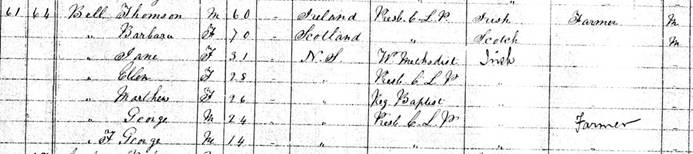 61 64 Bell Thomson M 60 Ireland Presb. C L P. Irish Farmer M
" Barbara F 70 Scotland " Scotch M
" Jane F 31 N. S. Wn Methodist Irish
" Ellen F 28 " Presb C L P "
" Marther F 26 " Reg. Baptist "
" George M 24 " Presb C L P " Farmer
" F George M 14 " " "